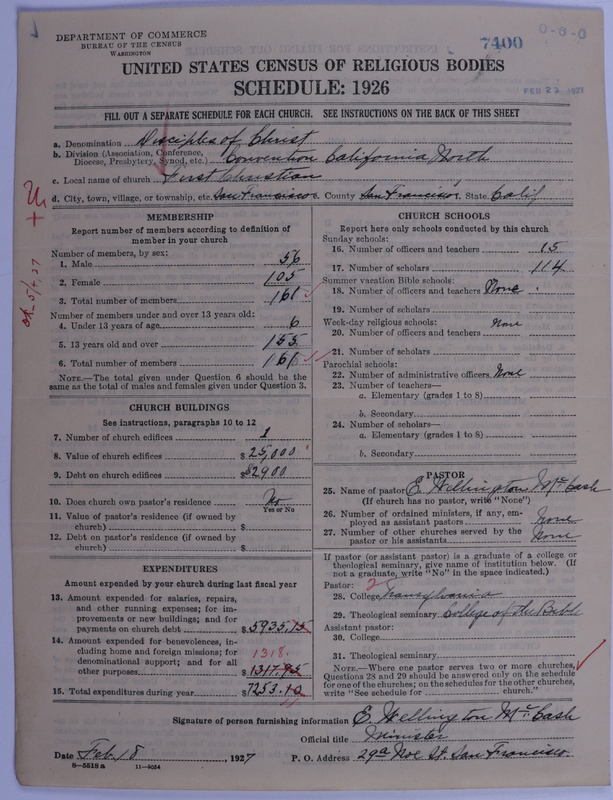 O-8-0
7400
FEB 23 1927
DEPARTMENT OF COMMERCE
BUREAU OF THE CENSUS
WASHINGTON
UNITED STATES CENSUS OF RELIGIOUS BODIES
SCHEDULE: 1926
FILL OUT A SEPARATE SCHEDULE FOR EACH CHURCH. SEE INSTRUCTIONS ON THE BACK OF THIS SHEET
a. Denomination Disciples of Christ
b. Division (Association, Conference, Diocese, Presbytery, Synod, etc.) Convention California North
c. Local name of church First Christian
d. City, town, village, or township, etc. San Francisco e. County San Francisco f. State Calif
OK 5/4/27
MEMBERSHIP
Report number of members according to definition of
member in your church
Number of members, by sex:
1. Male 56
2. Female 105
3. Total number of members 161
Number of members under and over 13 years old:
4. Under 13 years of age 6
5. 13 years old and over 155
6. Total number of members 161
NOTE.—The total given under Question 6 should be the
same as the total of males and females given under Question 3.
CHURCH BUILDINGS
See instructions, paragraphs 10 to 12
7. Number of church edifices 1
8. Value of church edifices $ 25,000
9. Debt on church edifices $ $2900
10. Does church own pastor's residence No
Yes or No
11. Value of pastor's residence (if owned by
church) $
12. Debt on pastor's residence (if owned by
church) $
EXPENDITURES
Amount expended by your church during last fiscal year
13. Amount expended for salaries, repairs,
and other running expenses; for im-
provements or new buildings; and for
payments on church debt $ 5935.15
14. Amount expended for benevolences, in-
cluding home and foreign missions; for
denominational support; and for all
1318.
other purposes $ 1317.95
15. Total expenditures during year $ 7253.10
CHURCH SCHOOLS
Report here only schools conducted by this church
Sunday schools:
16. Number of officers and teachers 15
17. Number of scholars 114
Summer vacation Bible schools:
18. Number of officers and teachers None
19. Number of scholars
Week-day religious schools: None
20. Number of officers and teachers
21. Number of scholars
Parochial schools:
22. Number of administrative officers None
23. Number of teachers—
a. Elementary (grades 1 to 8)
b. Secondary
24. Number of scholars—
a. Elementary (grades 1 to 8)
b. Secondary
PASTOR
25. Name of pastor E. Wellington McCash
(If church has no pastor, write "None")
26. Number of ordained ministers, if any, em-
ployed as assistant pastors None
27. Number of other churches served by the
pastor or his assistants None
If pastor (or assistant pastor) is a graduate of a college or
theological seminary, give name of institution below. (If
not a graduate, write "No" in the space indicated.)
Pastor: 2
28. College Transylvania
29. Theological seminary College of the Bible
Assistant pastor:
30. College
31. Theological seminary
NOTE.—Where one pastor serves two or more churches,
Questions 28 and 29 should be answered only on the schedule
for one of the churches; on the schedules for the other churches,
write "See schedule for church."
Signature of person furnishing information E. Wellington McCash
Official title Minister
Date Feb 18, 1927 P. O. Address 29a Noe St. San Francisco.
8—5518 a 11—9034